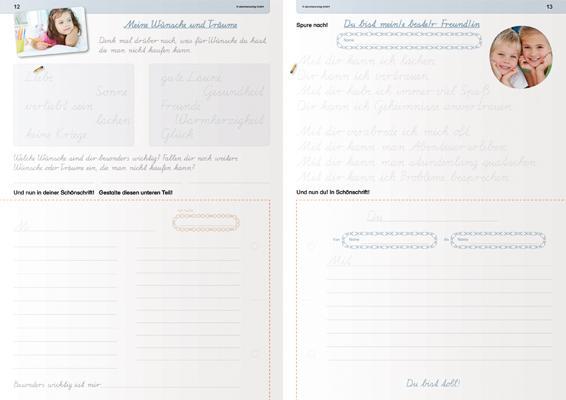 12
© sternchenverlag GmbH
Meine Wünsche und Träume
Denk mal drüber nach, was für Wünsche du hast,
die man nicht kaufen kann.
Liebe
Sonne
verliebt sein
lachen
keine Kriege
gute Laune
Gesundheit
Freunde
Warmherzigkeit
Glück
Welche Wünsche sind dir besonders wichtig? Fallen dir noch weitere
Wünsche oder Träume ein, die man nicht kaufen kann?
Und nun in deiner Schönschrift! Gestalte diesen unteren Teil!
Besonders wichtig ist mir:
© sternchenverlag GmbH
13
Spure nach!
Du bist mein/e beste/r Freund/in
Name
Mit dir kann ich lachen.
Dir kann ich vertrauen.
Mit dir habe ich immer viel Spaß.
Dir kann ich Geheimnisse anvertrauen.
Mit dir verabrede ich mich oft.
Mit dir kann man Abenteuer erleben.
Mit dir kann man stundenlang quatschen.
Mit dir kann ich Probleme besprechen.
Und nun du! In Schönschrift!
Du
Von Name An Name
Mit
Du bist toll!